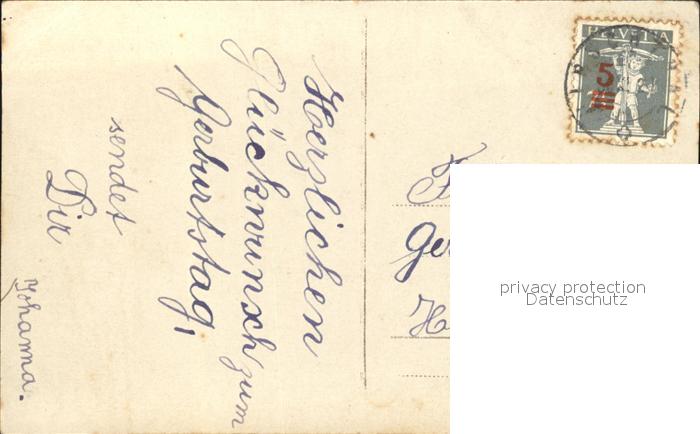 Herzlichen
Glückwunsch zum
Geburtstag,
sendet
Dir
Johanna.
HELVETIA
5
Ge
privacy protection
Datenschutz